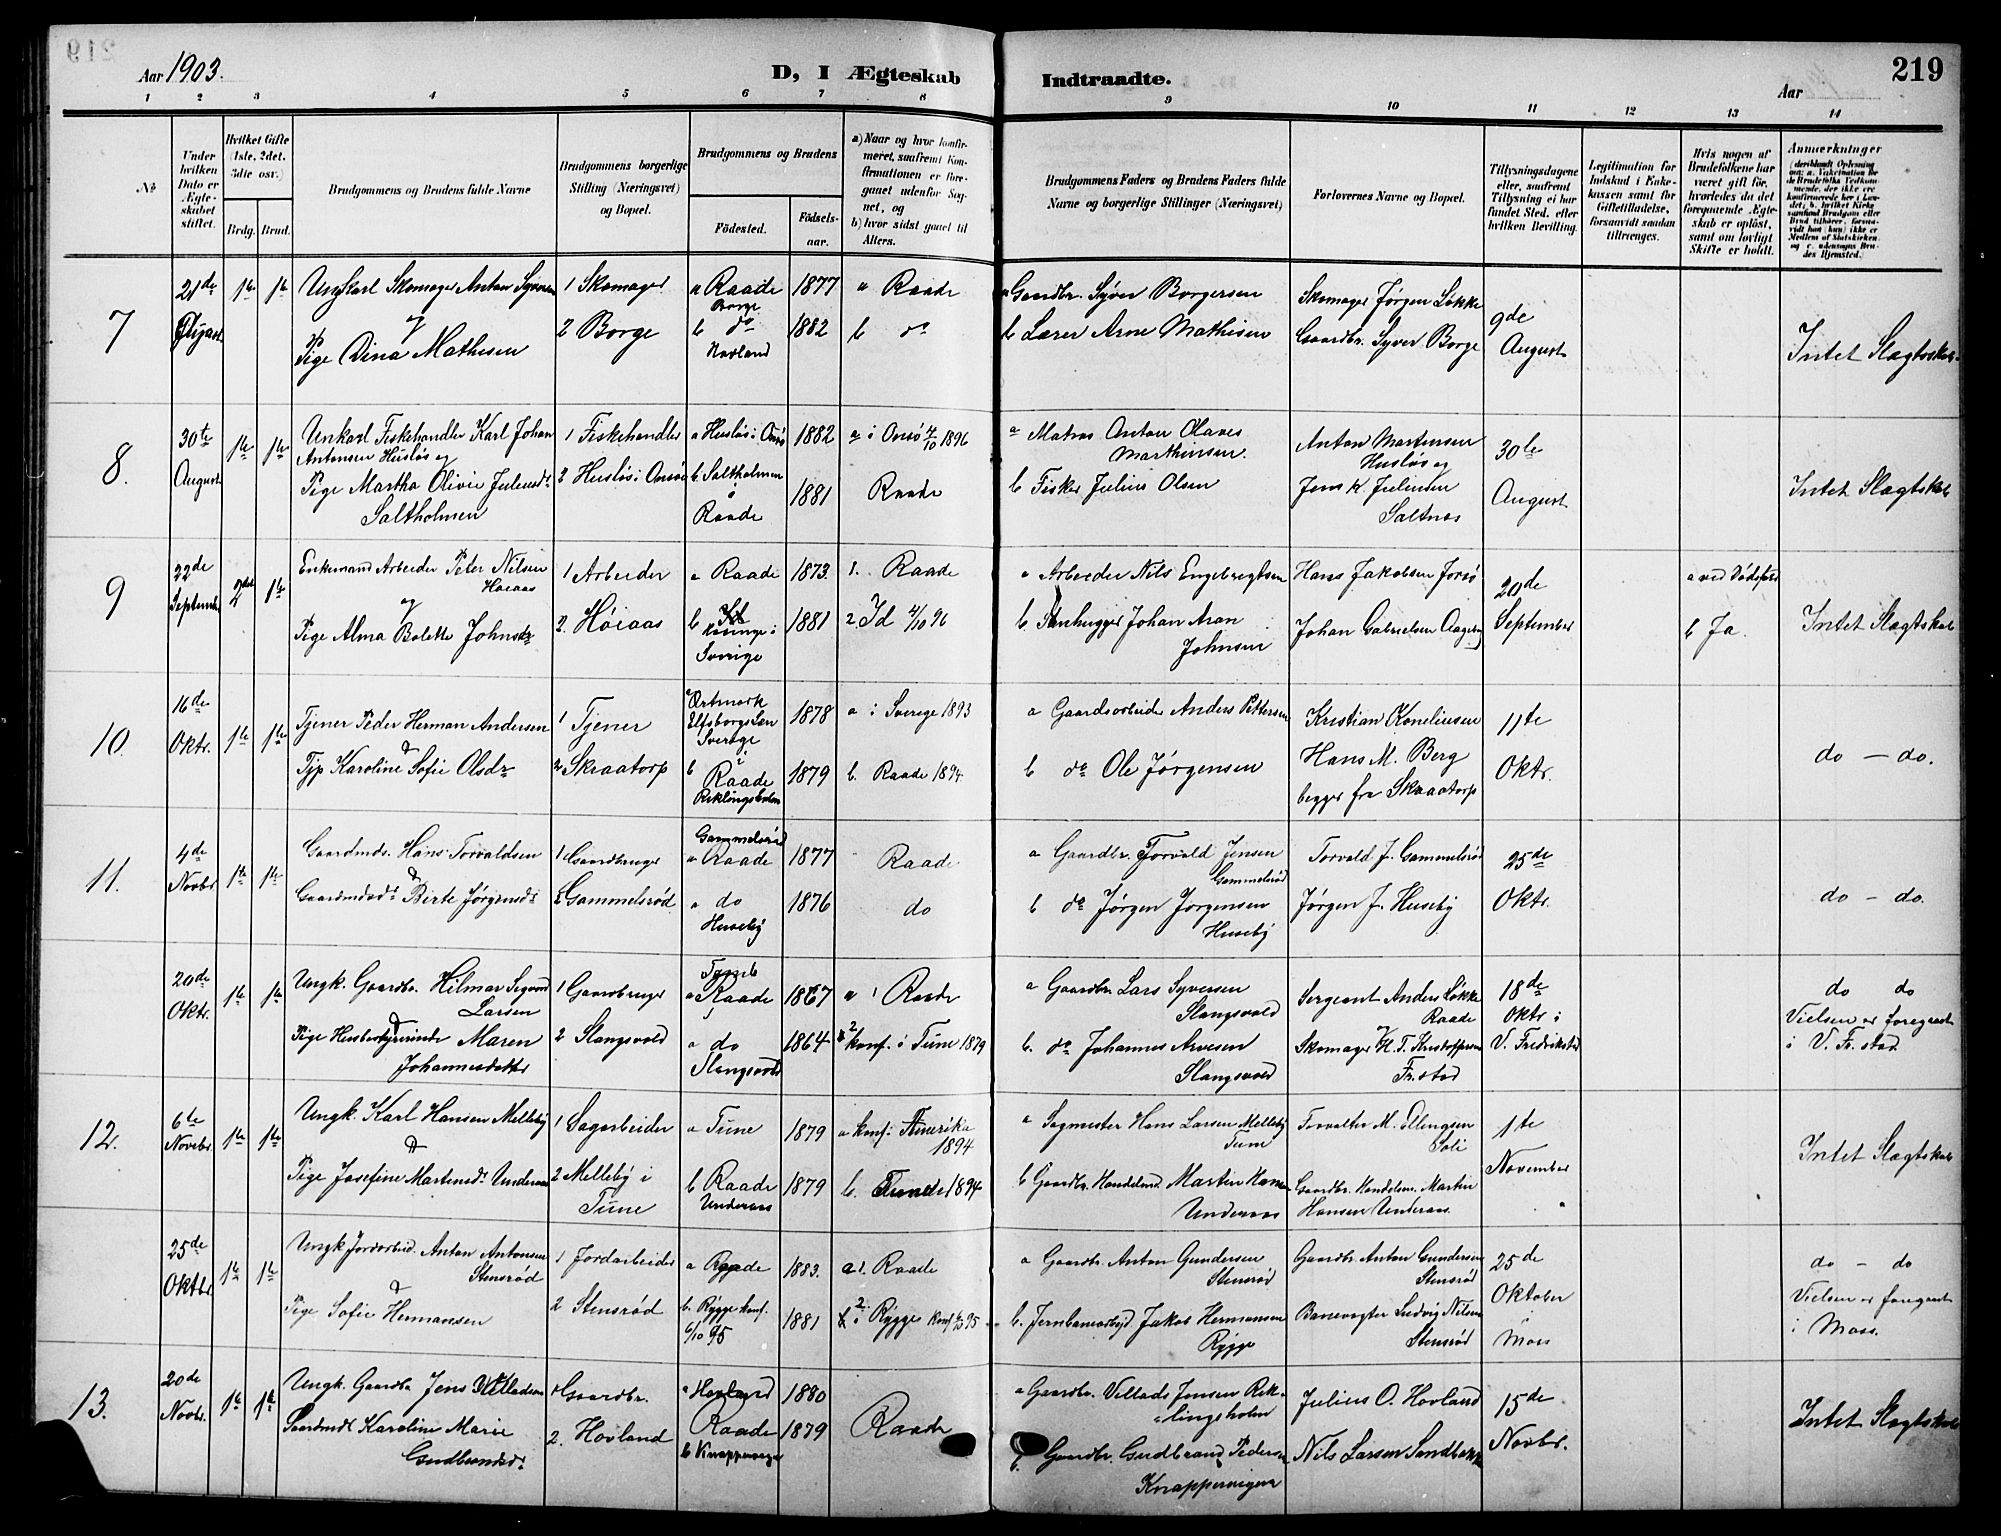 Aar 1903.
D, I Ægteskab
Indtraadte.
Aar
219
1 2 3 4 5 6 7 8 9 10 11 12 13 14
No
Under hvilken Dato er Ægteskabet stiftet.
Hvilket Gifte (1ste, 2det, 3die osv.)
Brdg. Brud.
Brudgommens og Brudens fulde Navne
Brudgommens borgerlige Stilling (Næringsvei) og Bopæl.
Brudgommens og Brudens
Fødested.
Fødselsaar.
a) Naar og hvor konfirmeret, saafremt Konfirmationen er foregaaet udenfor Sognet, og
b) hvor sidst gaaet til Alters.
Brudgommens Faders og Brudens Faders fulde Navne og borgerlige Stillinger (Næringsvei)
Forlovernes Navne og Bopæl.
Tillysningsdagene eller, saafremt Tillysning ei har fundet Sted, efter hvilken Bevilling.
Legitimation for Indskud i Enkekassen samt for Giftetilladelse, forsaavidt saadan tiltrænges.
Hvis nogen af Brudefolkene har været gift før, hvorledes da det foregaaende Ægteskab er opløst, samt om lovligt Skifte er holdt.
Anmærkninger
7
21de August
1te 1te
Ungkarl Skomager Anton Syversen
og
Pige Dina Mathisen
1 Skomager
2 Borge
a Raade Borge
b do Hovland
1877
1882
a Raade
b do
a Gaardbr. Syver Borgersen
b Lærer Arne Mathisen
Skomager Jørgen Løkke
Gaardbr. Syver Borge
9de August
Intet Slagtskab
8.
30te August
1te 1te
Unkarl Fiskehandler Karl Johan
Antonsen Husløs og
Pige Martha Olivie Juliusdr
Saltholmen
1 Fiskehandler
2 Husløs i Onsø
a Husløs i Onsø
b. Saltholmen i Raade
1882
1881
a i Onsø 4/10 1896
Raade
a Matros Anton Olaves Marthinsen.
b Fisker Julius Olsen
Anton Martinsen Husløs og
Jens K. Juliusen Saltnas
30te August
Intet Slagtskab
9
22de September
2det 1te
Enkemand Arbeider Peter Nilsen Høiaas
og
Pige Alma Bolette Johnsdr
1 Arbeider
2. Høiaas
a Raade
b Sverige
1873.
1881
1. Raade
2. Id 4/10 96
a Arbeider Nils Engebregtsen
b. Stenhugger Johan Aron Johnsen
Hans Jakobsen Jorsø
Johan Gabrielsen
20de September
a ved Dødsfald
b Ja.
Intet Slagtskab
10.
16de Oktr.
1te 1te
Tjener Peder Herman Andersen
&
Tjp Karoline Sofie Olsdr
1 Tjener
2 Skraatorp
a Ortmark Elfsborgs Len Sverige
b i Raade Riklingsholm
1878
1879
a i Sverige 1893
b. Raade 1894.
a Gaardsarbeider Anders Pettersen
b do Ole Jørgensen
Kristian Korneliusen
Hans M. Berg
begge fra Skraatorp
11te Oktr.
do — do.
11.
4de Novbr.
1te 1te
Gaardmds. Hans Torvaldsen
&
Gaardmdsdr Birte Jørgensdr
1 Gaardbruger
2 Gammelsrød
Gammelsrød
a Raade
a do Huseby
1877
1876
Raade
do
a Gaardbr. Torvald Jensen Gammelsrød
b do Jørgen Jørgensen Huseby
Torvald J. Gammelsrød
Jørgen J. Huseby
25de Oktr.
do — do.
20de Oktr.
1te 1te
Ungk. Gaardbr. Hilmar Sigvard Larsen
&
Pige Husbestyrerinde Maren Johannesdatter
1 Gaardbruger
2 Slangsvold
Tomb
a Raade
a do Slangsvold
1867
1864
a 1 Raade
2 konf. i Tune 1879
a Gaardbr Lars Syversen Slangsvold
b. do Johannes Arvesen Slangsvold
Sergeant Anders Løkke Raade
Skomager H. T. Kristoffersen Fr.stad
18de Oktr i V. Fredrikstad
do do
Vielsen er foregaaet i V. Fr. stad.
12.
6te Novbr.
1te 1te
Ungk. Karl Hansen Melleby
&
Pige Josefine Martinsdr Underaas
1 Sagarbeider
2 Melleby i Tune
a Tune
b Raade Underaas
1879
1879
a konf i Amerika 1894
b. Tune 1894
a Sagmester Hans Larsen Melleby Tune
b Gaardbr. Handelsmd. Martin Hansen Underaas
Forvalter M. Ellingsen Soli
Gaardbr. Handelsm. Martin Hansen Underaas.
1te November
Intet Slagtskab
25de Oktbr
1te 1te
Ungk Jordarbeid. Anton Antonsen Stensrød
&
Pige Sofie Hermansen
1 Jordarbeider
2 Stensrød
a Raade
b. Rygge konf. 6/10 95
1883.
1881
a 1. Raade
2. i Rygge konf 6/10 95
a Gaardbr. Anton Gundersen Stensrød
b. Jernbanearbeid. Jakob Hermansen Rygge
Gaardbr. Anton Gundersen Stensrød
Banevogter Ludvig Nilsen Stensrød
25de Oktober i Moss
do — do
Vielsen er foregaaet i Moss.
13.
20de Novbr.
1te 1te
Ungk. Gaardbr Jens Villadsen
Gaardmdr Karoline Marie
Gudbrandsdr
1 Gaardbr.
2. Hovland
a Hovland
Raade
b Knappereger
1880
1879
Raade
a Gaardbr. Villads Jensen Riklingsholm
b. Gaardbr. Gudbrand Pedersen
Julius O. Hovland
Nils Larsen Sandbakke
15de Novbr.
Intet Slagtskab